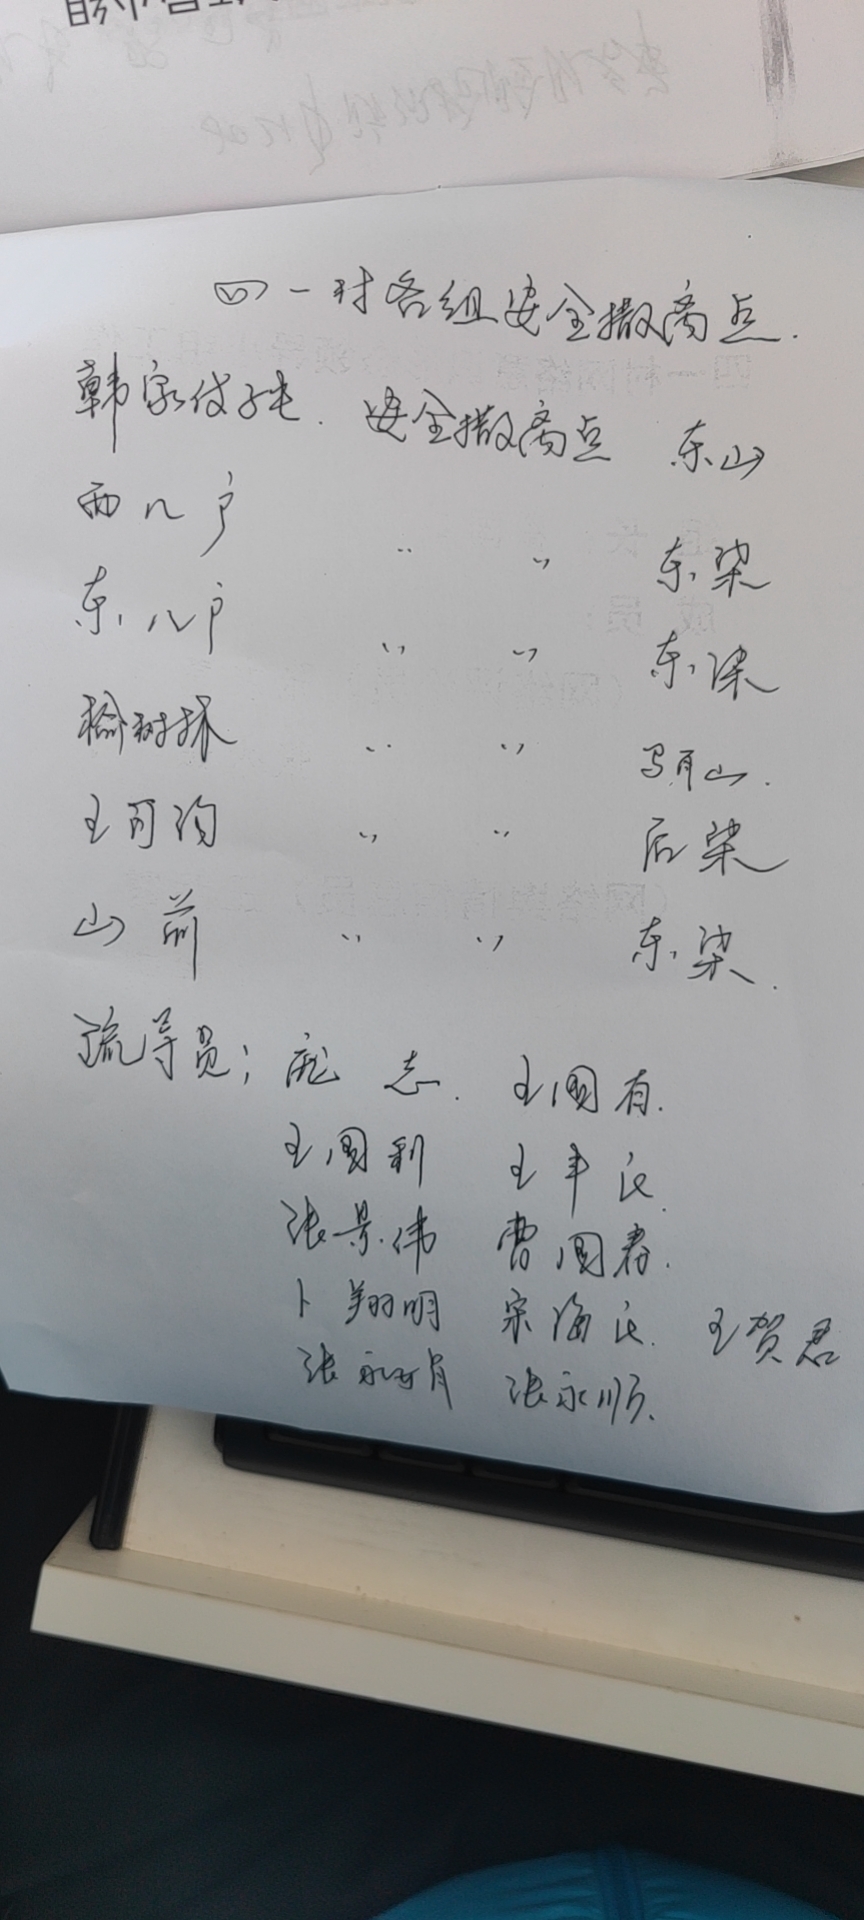 四一村各组安全撤离点.
韩家伏子屯. 安全撤离点 东山
西八户 〃 〃 东梁
东八户 〃 〃 东梁
榆树林 〃 〃 马肖山.
王可沟 〃 〃 后梁
山前 〃 〃 东梁.
疏导员; 庞志. 王国有.
王国利 王丰民.
张景伟 曹国春.
卜翔明 宋海民. 王贺君
张永 张永顺.